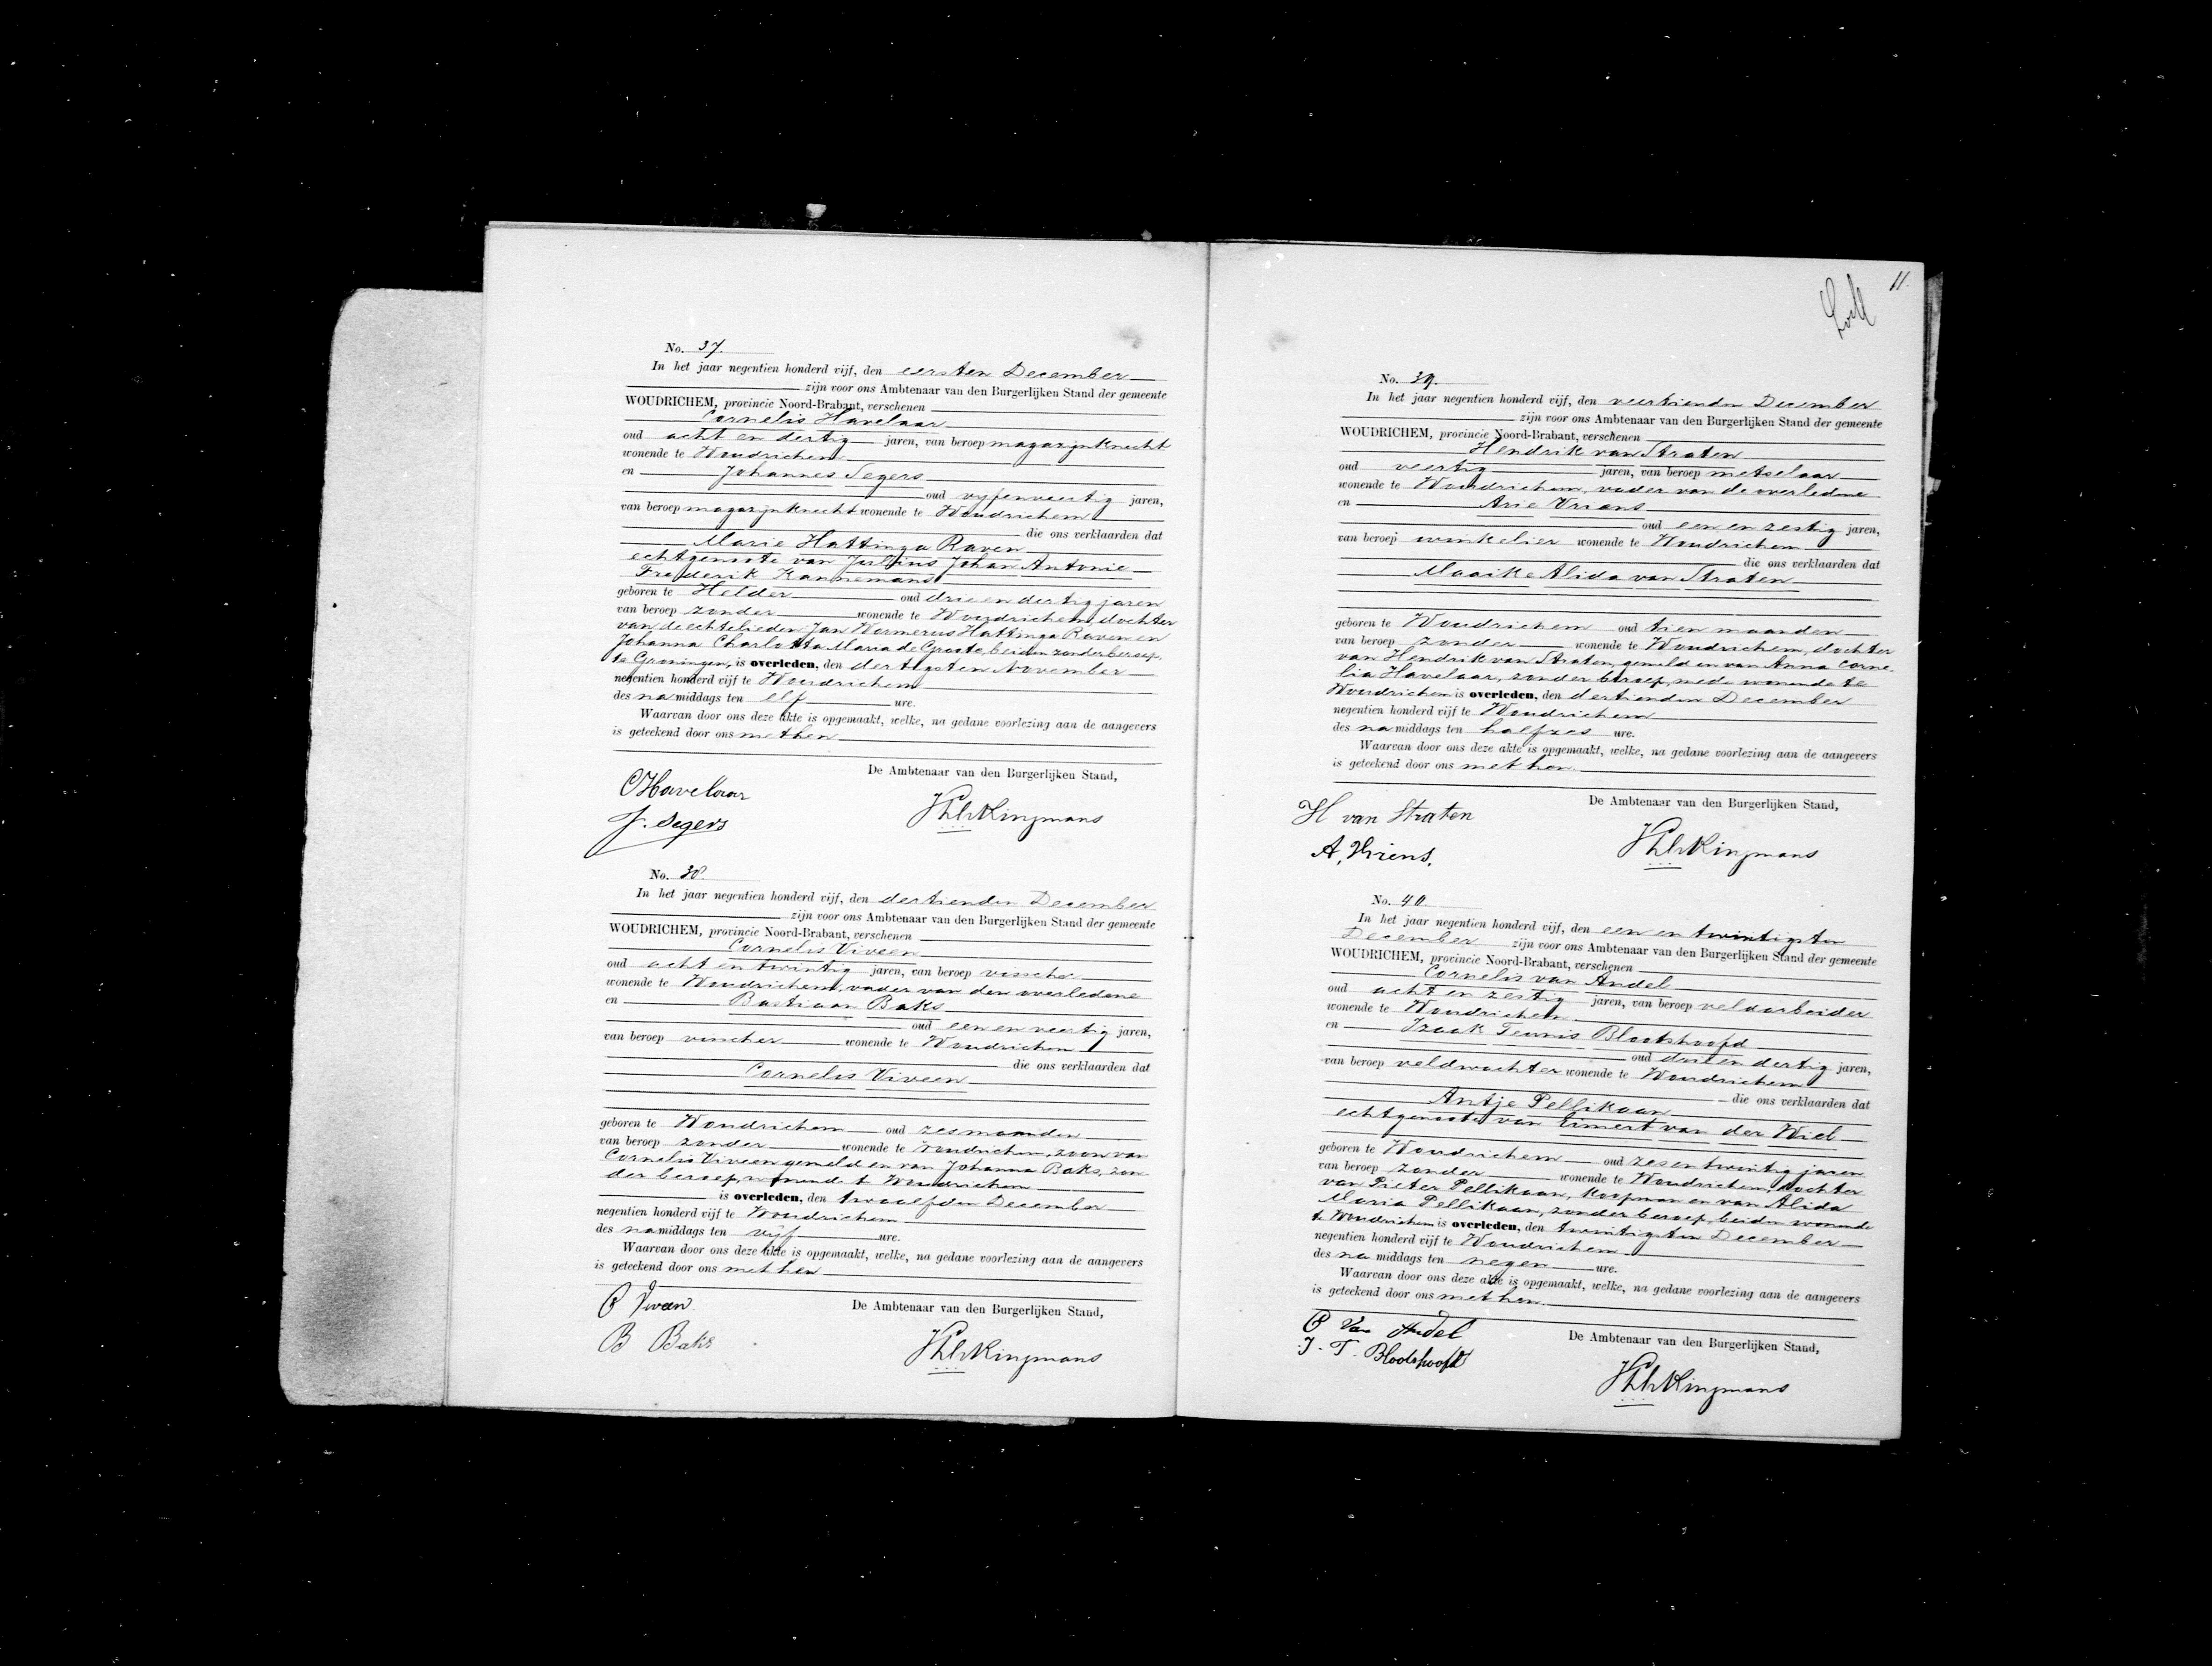 No. 37.
In het jaar negentien honderd vijf, den eersten December
zijn voor ons Ambtenaar van den Burgerlijken Stand der gemeente
WOUDRICHEM, provincie Noord-Brabant, verschenen
Cornelis Havelaar
oud acht en dertig jaren, van beroep magazijnknecht
wonende te Woudrichem
en Johannes Segers
oud vyfenveertig jaren,
van beroep magazijnknecht wonende te Woudrichem
die ons verklaarden dat
Marie Hattinga Raven
echtgenoote van Julius Johan Antonie
Frederik Kannemans
geboren te Helder oud drie en dertig jaren
van beroep zonder wonende te Woudrichem, dochter
van de echtelieden Jan Wormerus Hattinga Raven en
Johanna Charlotta Maria de Groote, beiden zonder beroep,
te Groningen, is overleden, den dertigsten November
negentien honderd vijf te Woudrichem
des namiddags ten elf ure.
Waarvan door ons deze akte is opgemaakt, welke, na gedane voorlezing aan de aangevers
is geteekend door ons met hen
De Ambtenaar van den Burgerlijken Stand,
CHavelaar
J. Segers
No. 38.
In het jaar negentien honderd vijf, den dertienden December
zijn voor ons Ambtenaar van den Burgerlijken Stand der gemeente
WOUDRICHEM, provincie Noord-Brabant, verschenen
Cornelis Viveen
oud acht en twintig jaren, van beroep visscher
wonende te Woudrichem, vader van den overledene
en Bastiaan Baks
oud een en veertig jaren,
van beroep visscher wonende te Woudrichem
die ons verklaarden dat
Cornelis Viveen
geboren te Woudrichem oud zes maanden
van beroep zonder wonende te Woudrichem, zoon van
Cornelis Viveen gemeld en van Johanna Baks, zon
der beroep, wonende te Woudrichem
is overleden, den twaalfden December
negentien honderd vijf te Woudrichem
des namiddags ten vijf ure.
Waarvan door ons deze akte is opgemaakt, welke, na gedane voorlezing aan de aangevers
is geteekend door ons met hen
C Viveen
De Ambtenaar van den Burgerlijken Stand,
B Baks
11.
No. 39.
In het jaar negentien honderd vijf, den veertienden December
zijn voor ons Ambtenaar van den Burgerlijken Stand der gemeente
WOUDRICHEM, provincie Noord-Brabant, verschenen
Hendrik van Straten
oud veertig jaren, van beroep metselaar
wonende te Woudrichem, vader van de overledene
en Arie Vriens
oud een en zestig jaren,
van beroep winkelier wonende te Woudrichem
die ons verklaarden dat
Maaike Alida van Straten
geboren te Woudrichem oud tien maanden
van beroep zonder wonende te Woudrichem, dochter
van Hendrik van Straten, gemeld en van Anna Corne-
lia Havelaar, zonder beroep, mede wonende te
Woudrichem is overleden, den dertienden December
negentien honderd vijf te Woudrichem
des namiddags ten halfzes ure.
Waarvan door ons deze akte is opgemaakt, welke, na gedane voorlezing aan de aangevers
is geteekend door ons met hen.
De Ambtenaar van den Burgerlijken Stand,
H van Straten
A, Vriens.
No. 40.
In het jaar negentien honderd vijf, den een en twintigsten
December zijn voor ons Ambtenaar van den Burgerlijken Stand der gemeente
WOUDRICHEM, provincie Noord-Brabant, verschenen
Cornelis van Andel
oud acht en zestig jaren, van beroep veldarbeider
wonende te Woudrichem
en Izaak Teunis Blootshoofd
oud drie en dertig jaren,
van beroep veldwachter wonende te Woudrichem
die ons verklaarden dat
Antje Pellikaan
echtgenoote van Eimert van der Wiel
geboren te Woudrichem oud zes en twintig jaren
van beroep zonder wonende te Woudrichem, dochter
van Pieter Pellikaan, koopman en van Alida
Maria Pellikaan, zonder beroep, beiden wonende
te Woudrichem is overleden, den twintigsten December
negentien honderd vijf te Woudrichem
des namiddags ten negen ure.
Waarvan door ons deze akte is opgemaakt, welke, na gedane voorlezing aan de aangevers
is geteekend door ons met hen.
C Van Andel
De Ambtenaar van den Burgerlijken Stand,
J. T. Blootshoofd